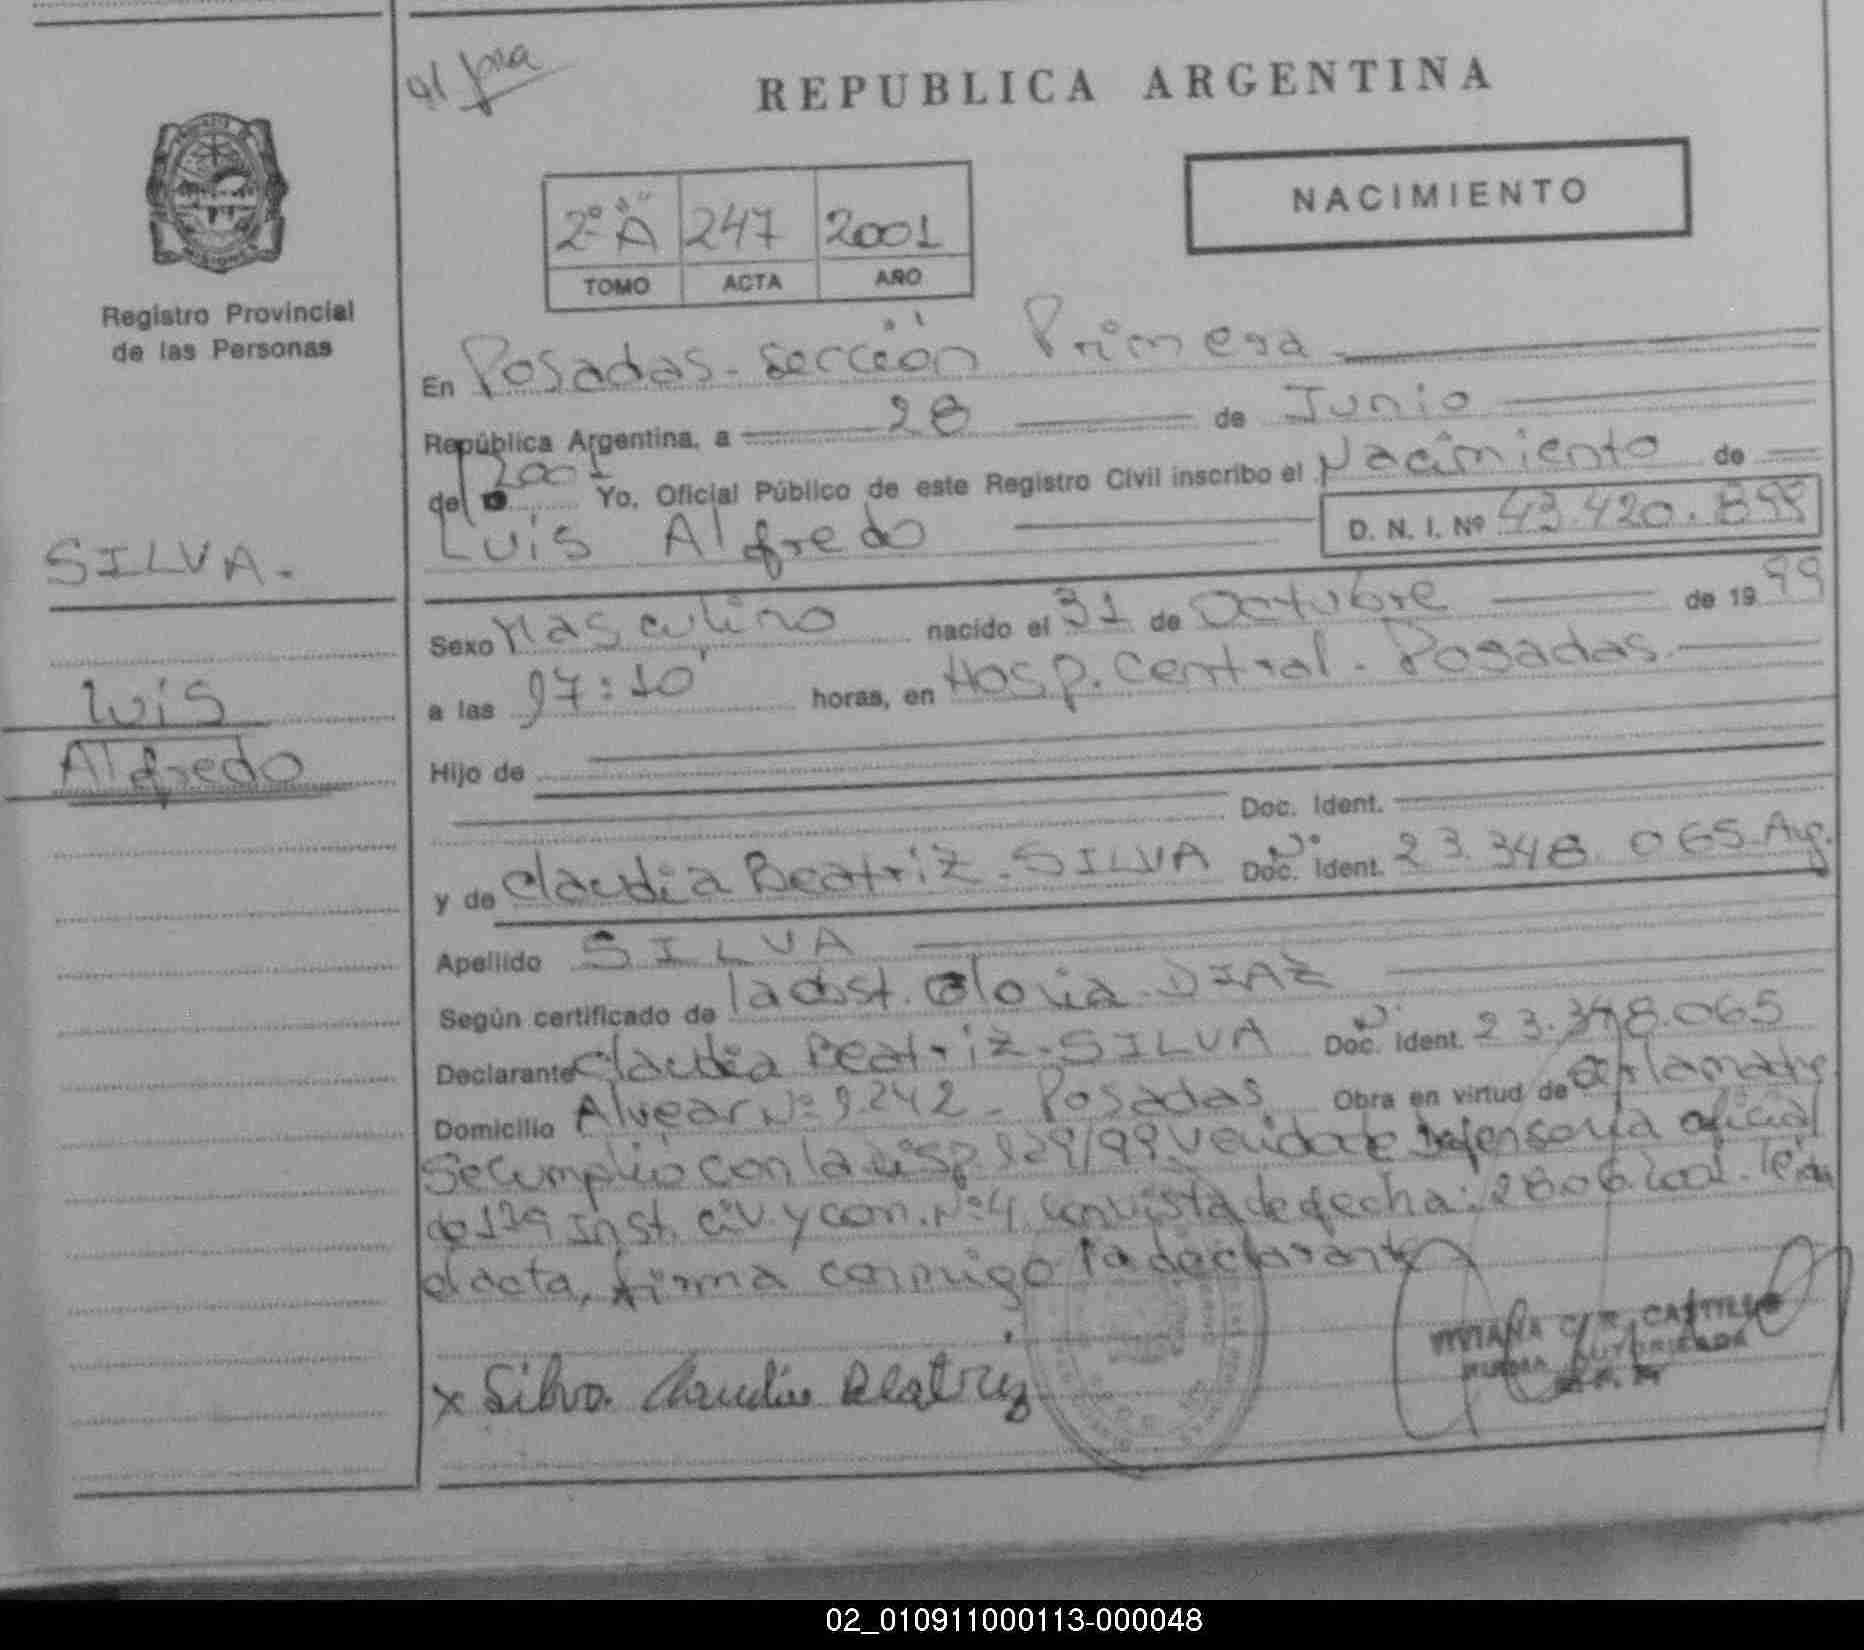 al pra
REPUBLICA ARGENTINA
NACIMIENTO
2º "A" 247 2001
TOMO ACTA AÑO
Registro Provincial
de las Personas
En Posadas - Sección Primera
República Argentina, a 28 de Junio
del 2001 Yo, Oficial Público de este Registro Civil inscribo el Nacimiento de
Luis Alfredo D. N. I. Nº 43.420.899
SILVA.
Luis
Alfredo
Sexo Masculino nacido el 31 de Octubre de 1999
a las 17:10' horas, en Hosp. Central - Posadas
Hijo de
Doc. Ident.
y de Claudia Beatriz - SILVA Doc. Ident. Nº 23.348.065 Arg.
Apellido SILVA
Según certificado de la obst. Gloria DIAZ
Declarante Claudia Beatriz - SILVA Doc. Ident. Nº 23.348.065
Domicilio Alvear Nº 9242 - Posadas Obra en virtud de ser la madre
Se cumplió con la Disp. 929/99 venida de Defensoría oficial
de 1ra Inst. Civ. y com. Nº 4 con vista de fecha: 28.06.2001. leída
el acta, firma conmigo la declarante
x Silva Claudia Beatriz
VIVIANA CASTILLO
FIRMA AUTORIZADA
02_010911000113-000048